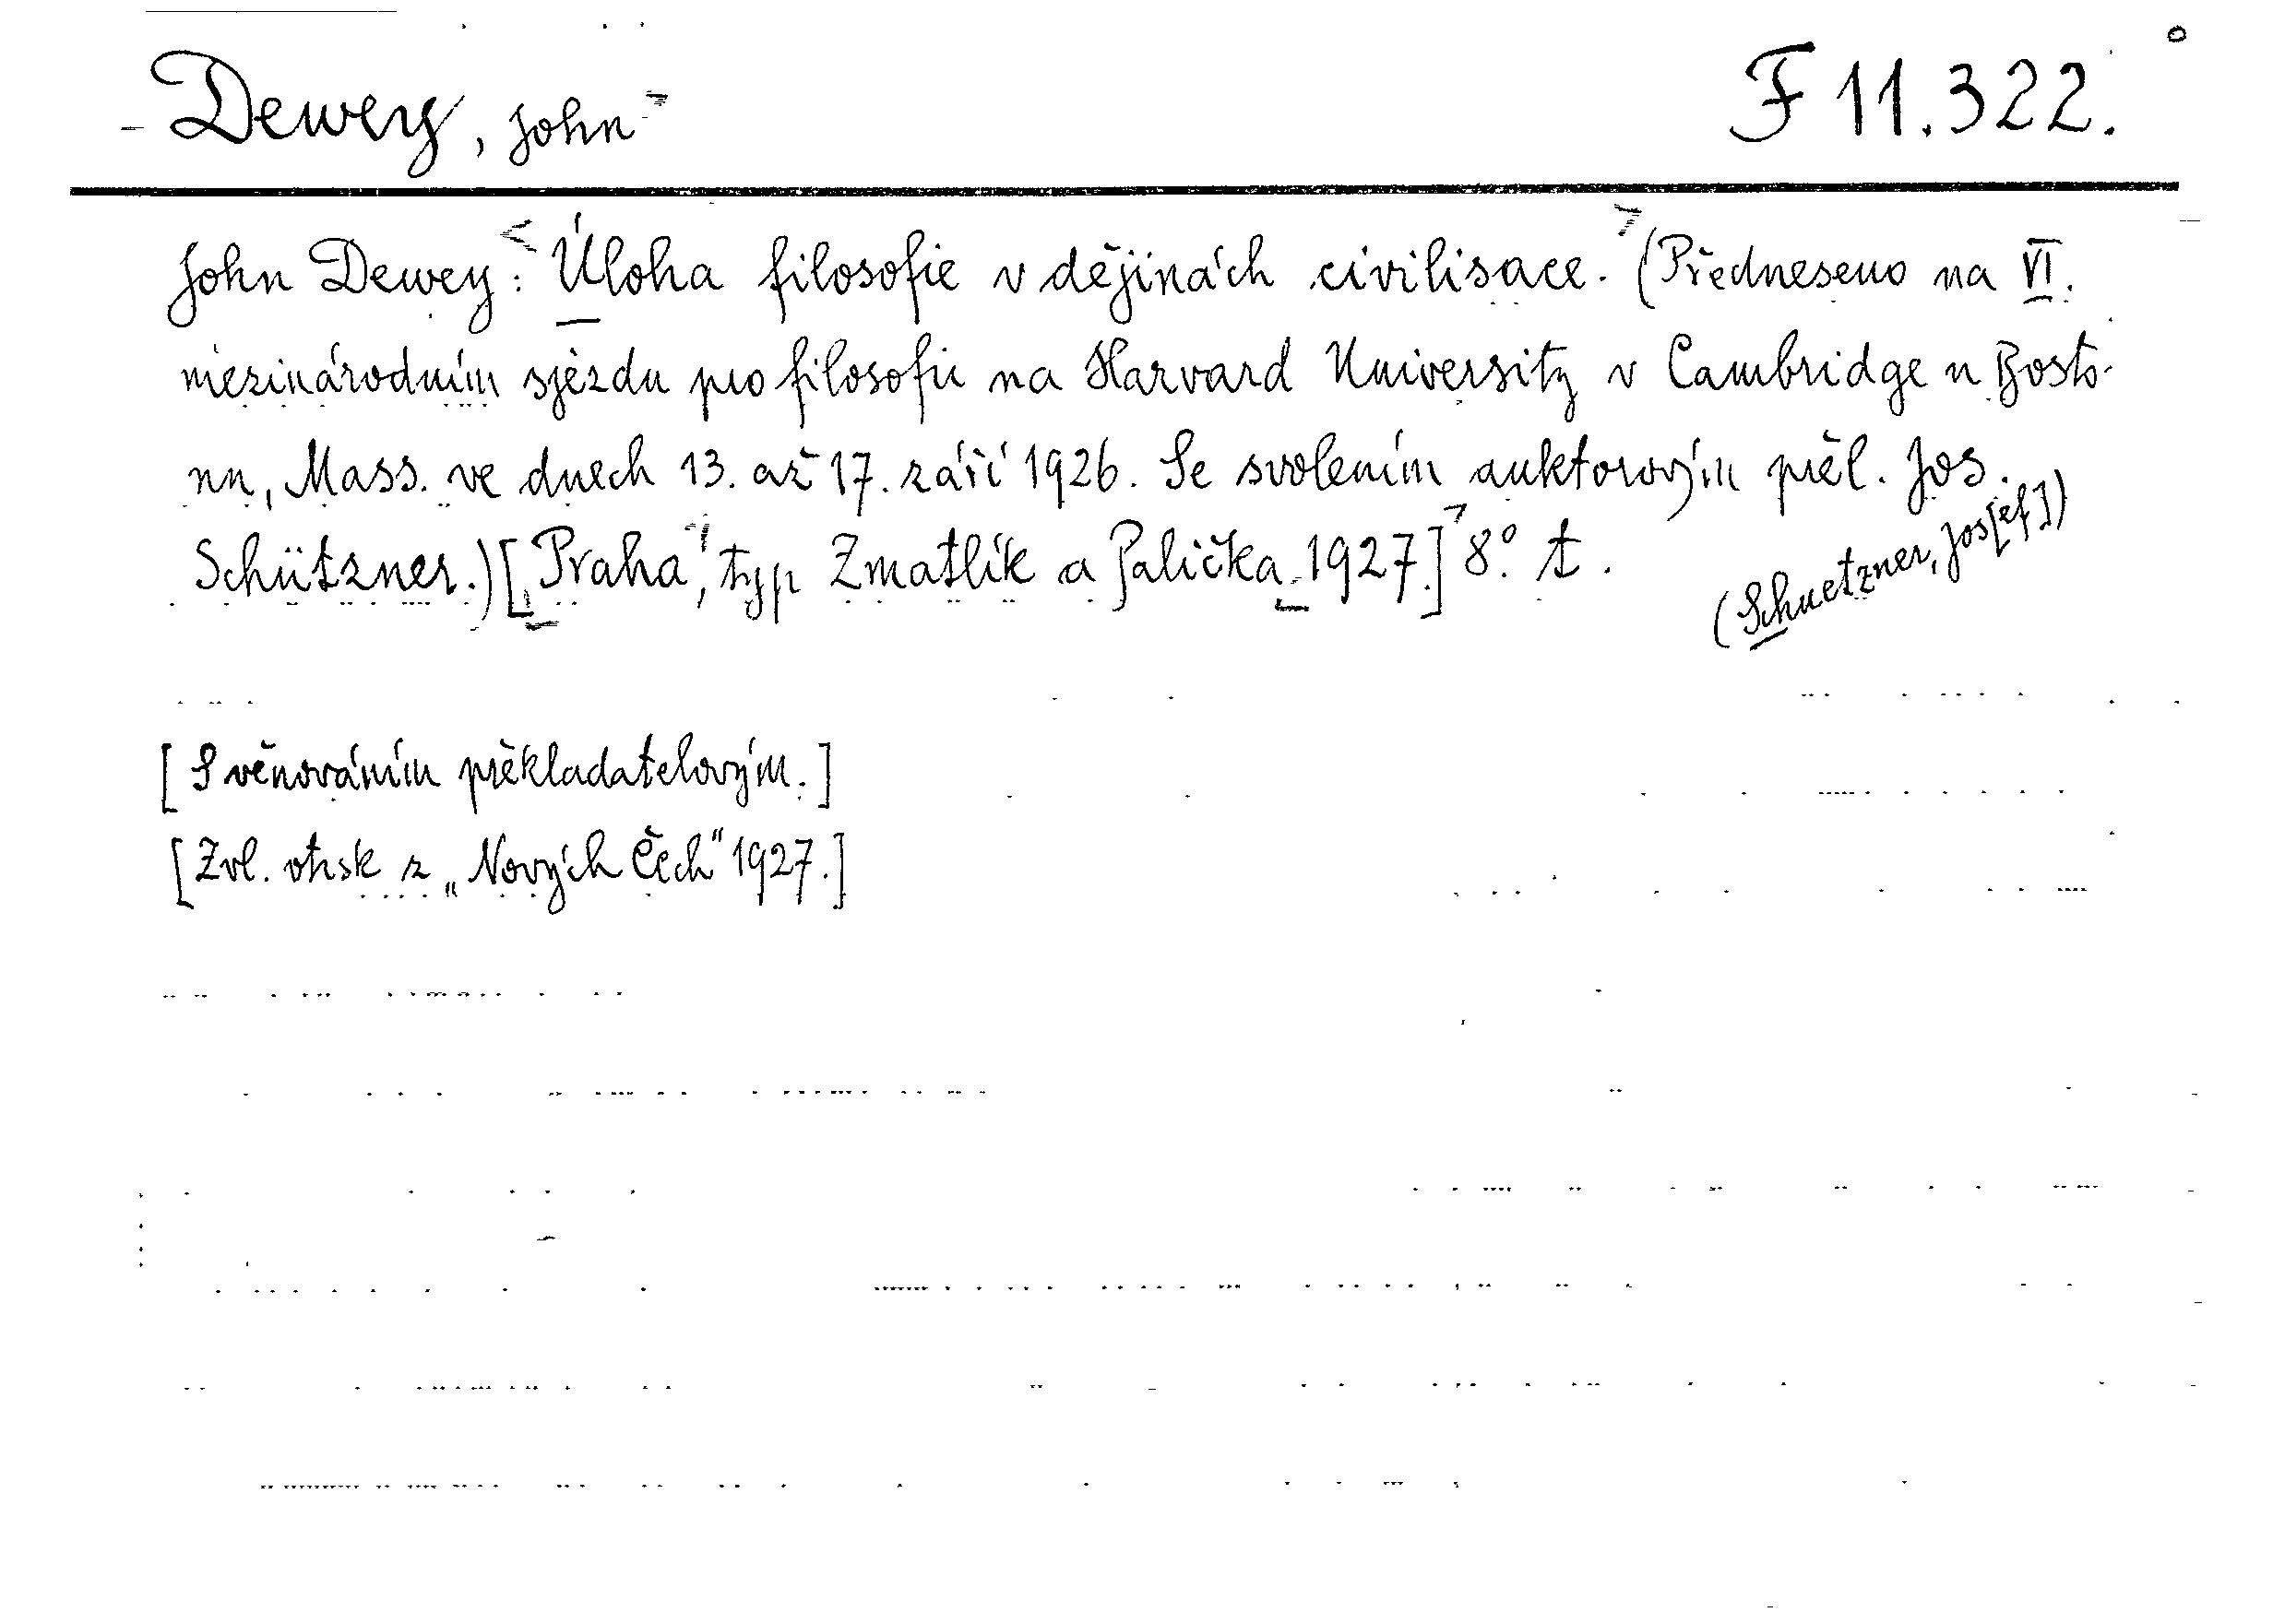 Dewey, John
F 11.322.
John Dewey: Úloha filosofie v dějinách civilisace. (Předneseno na VI.
mezinárodním sjezdu pro filosofii na Harvard University v Cambridge u Bosto-
nu, Mass. ve dnech 13. až 17. září 1926. Se svolením auktorovým přel. Jos.
Schützner.) [Praha, typ Zmatlík a Palička 1927.] 8° t.
(Schuetzner, Jos[ef])
[S věnováním překladatelovým.]
[Zvl. otisk z „Nových Čech" 1927.]